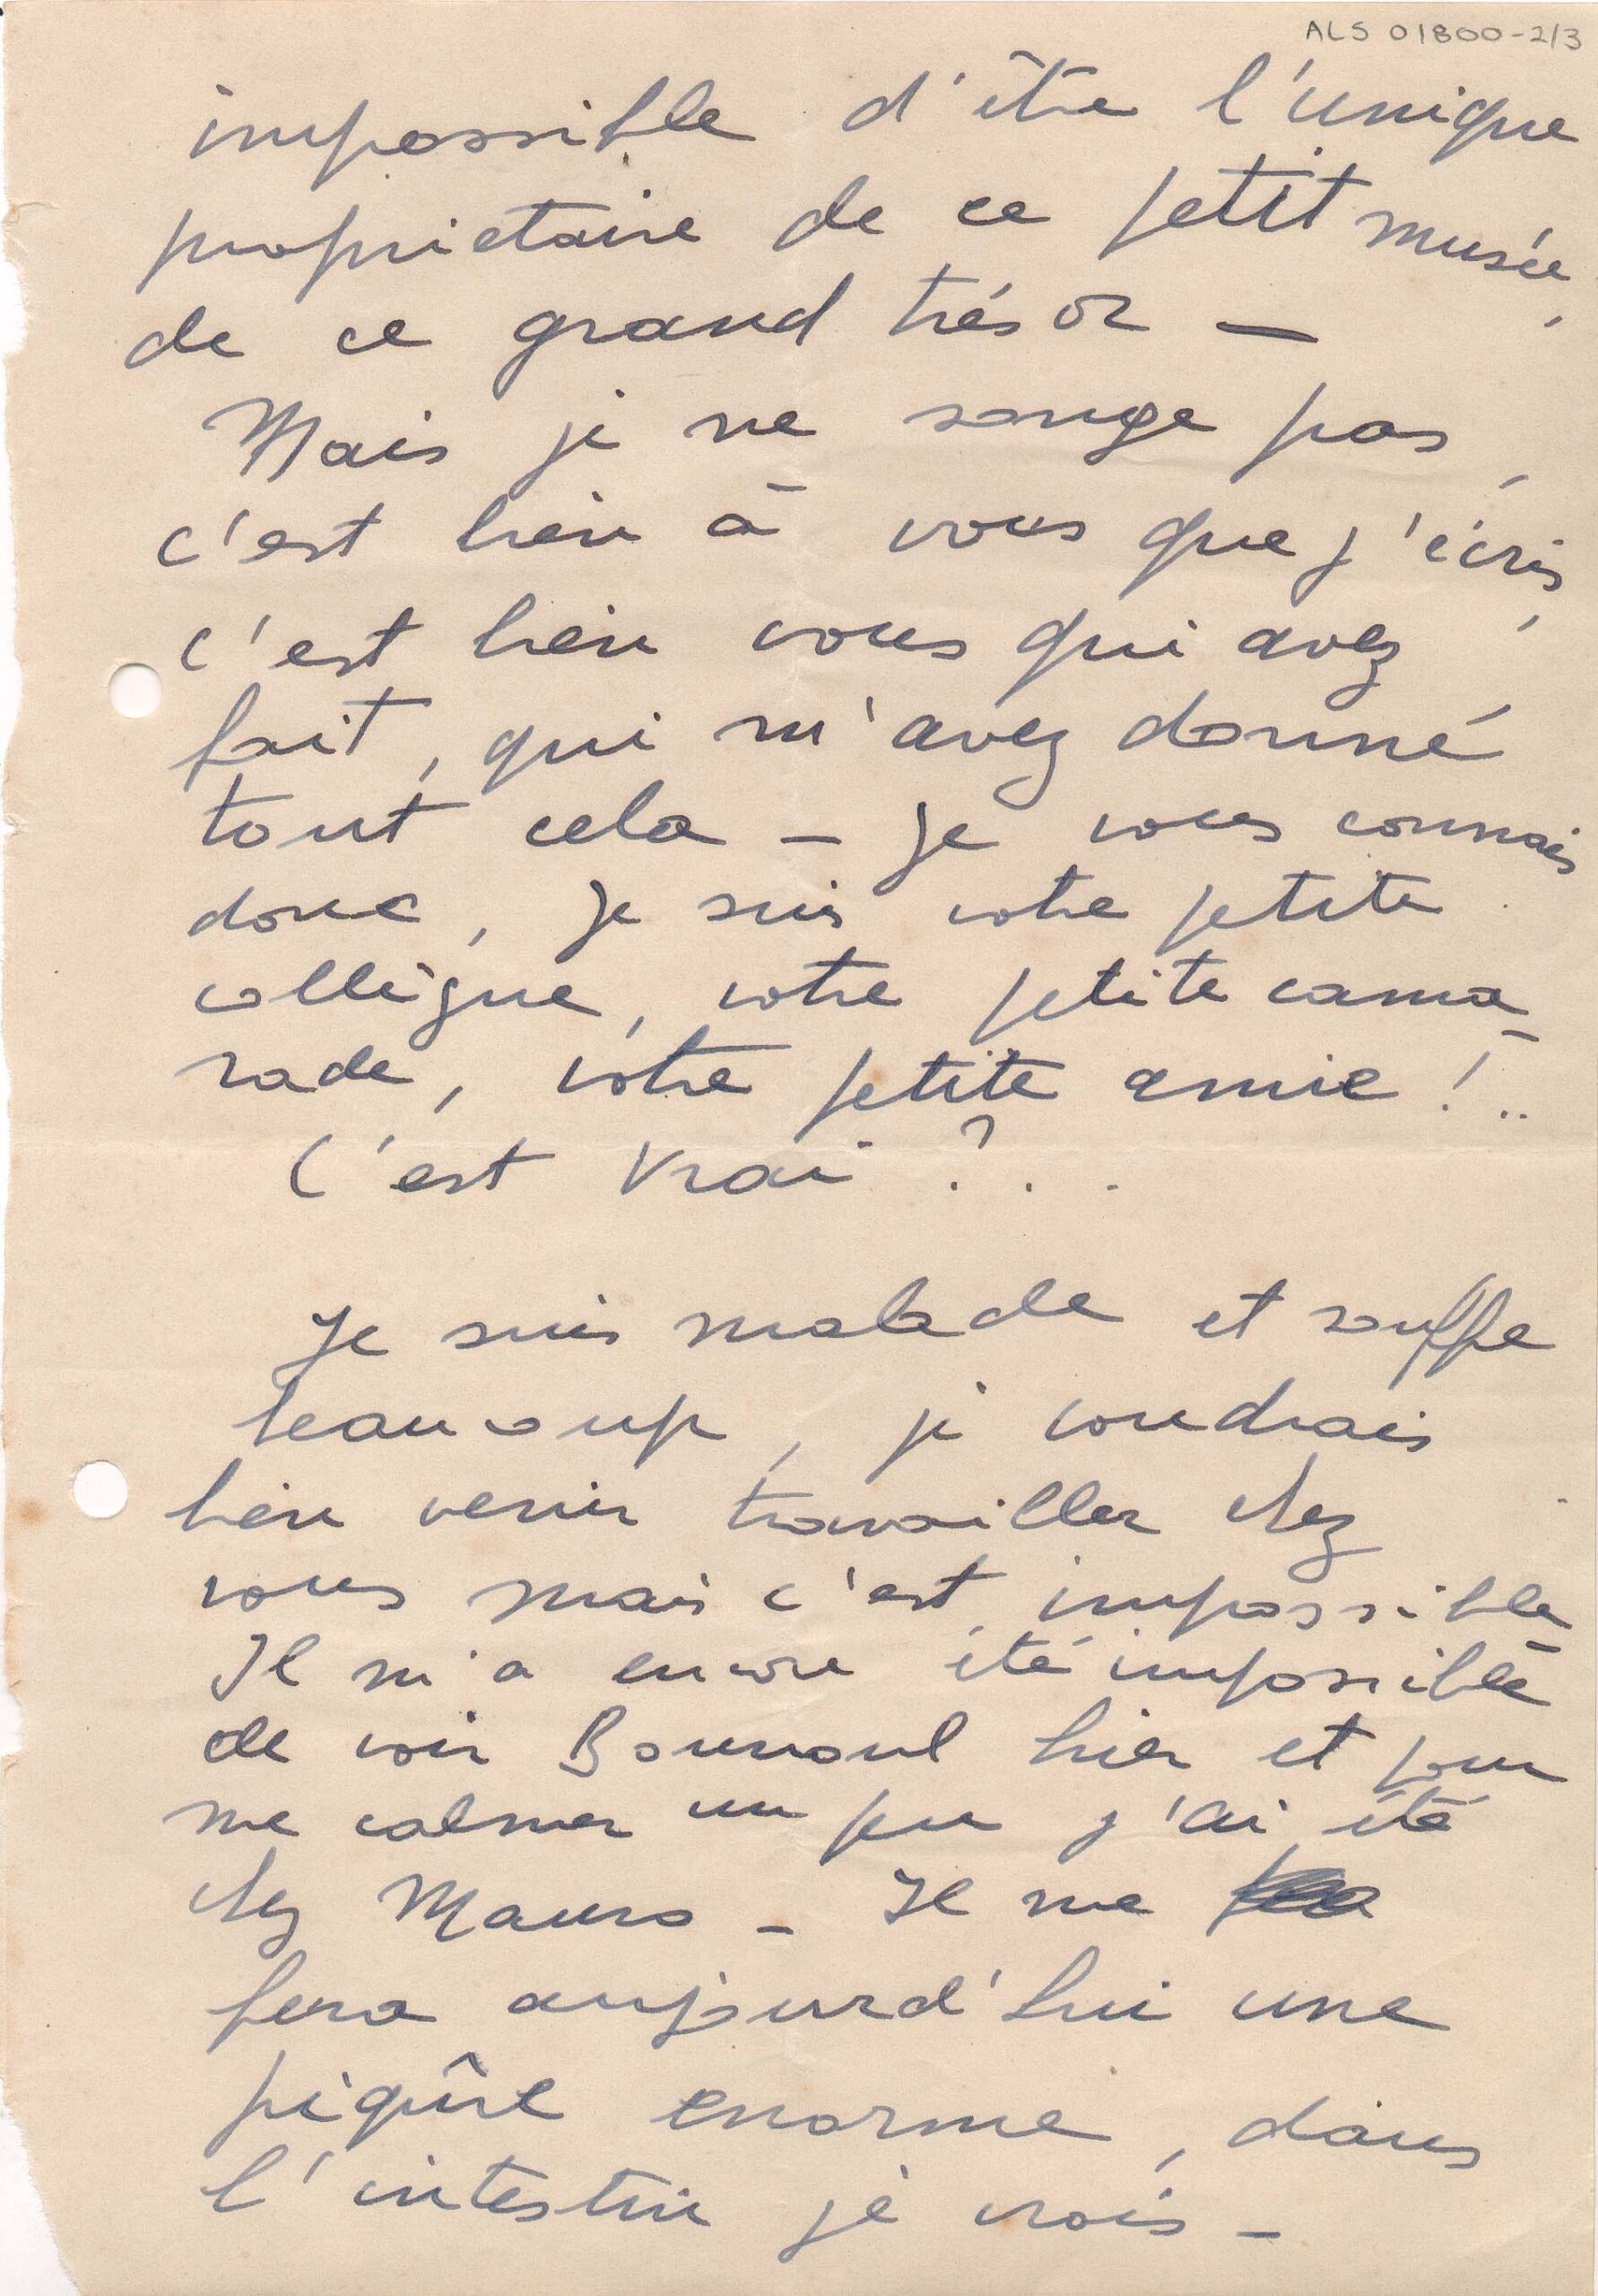 ALS 01800-2/3
impossible d'être l'unique
proprietaire de ce petit musée,
de ce grand trésor —
Mais je ne songe pas,
c'est bien à vous que j'écris,
c'est bien vous qui avez
fait, qui m'avez donné
tout cela — Je vous connais
donc, je suis votre petite
collègue, votre petite cama-
rade, votre petite amie !..
C'est vrai ? . .
Je suis malade et souffre
beaucoup, je voudrais
bien venir travailler chez
vous mais c'est impossible.
Il m'a encore été impossible
de voir hier et pour
me calmer un peu j'ai été
chez Mauro — Il me
fera aujourd'hui une
piqûre enorme, dans
l'intestin je crois —